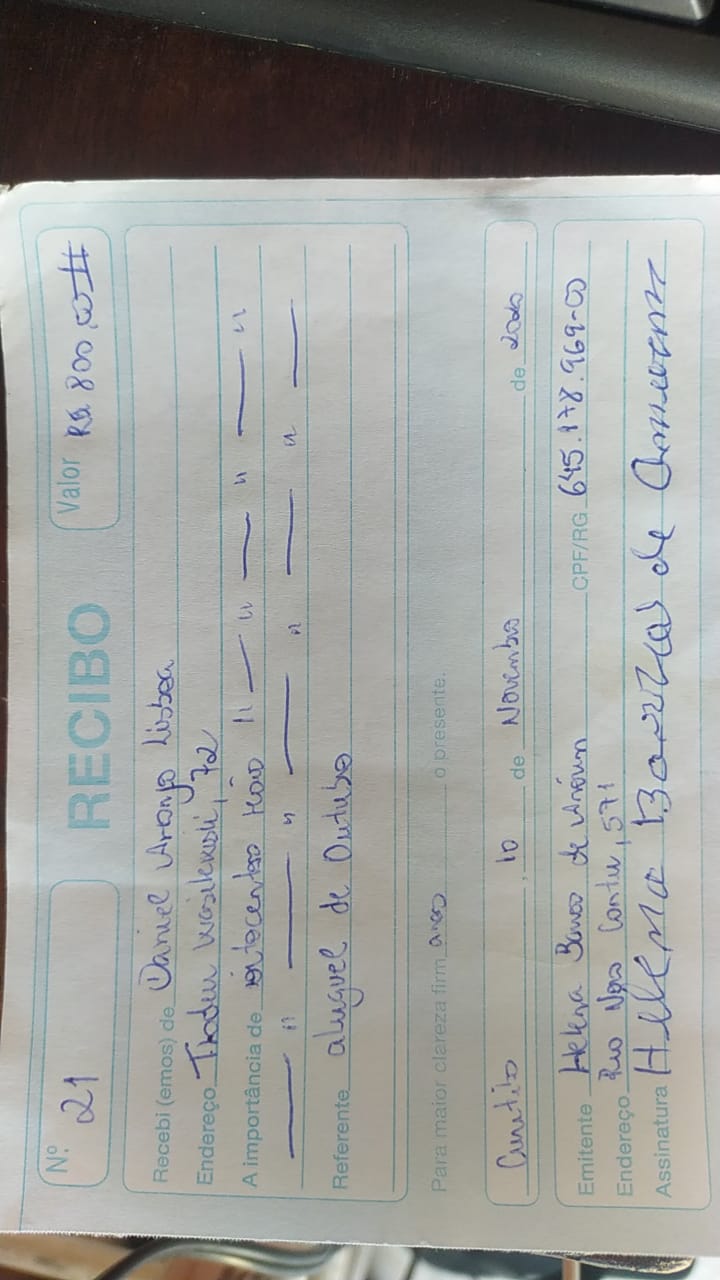 Nº 21 RECIBO Valor R$ 800,00 #
Recebi (emos) de Daniel Araujo Lisboa
Endereço Tadeu 72
A importância de oitocentos " — " — " — "
— " — " — " — " —
Referente aluguel de Outubro
Para maior clareza firm o presente.
Curitiba, 10 de Novembro de 2020
Emitente Helena de CPF/RG 645.178.969-00
Endereço Rua , 571
Assinatura Helena de